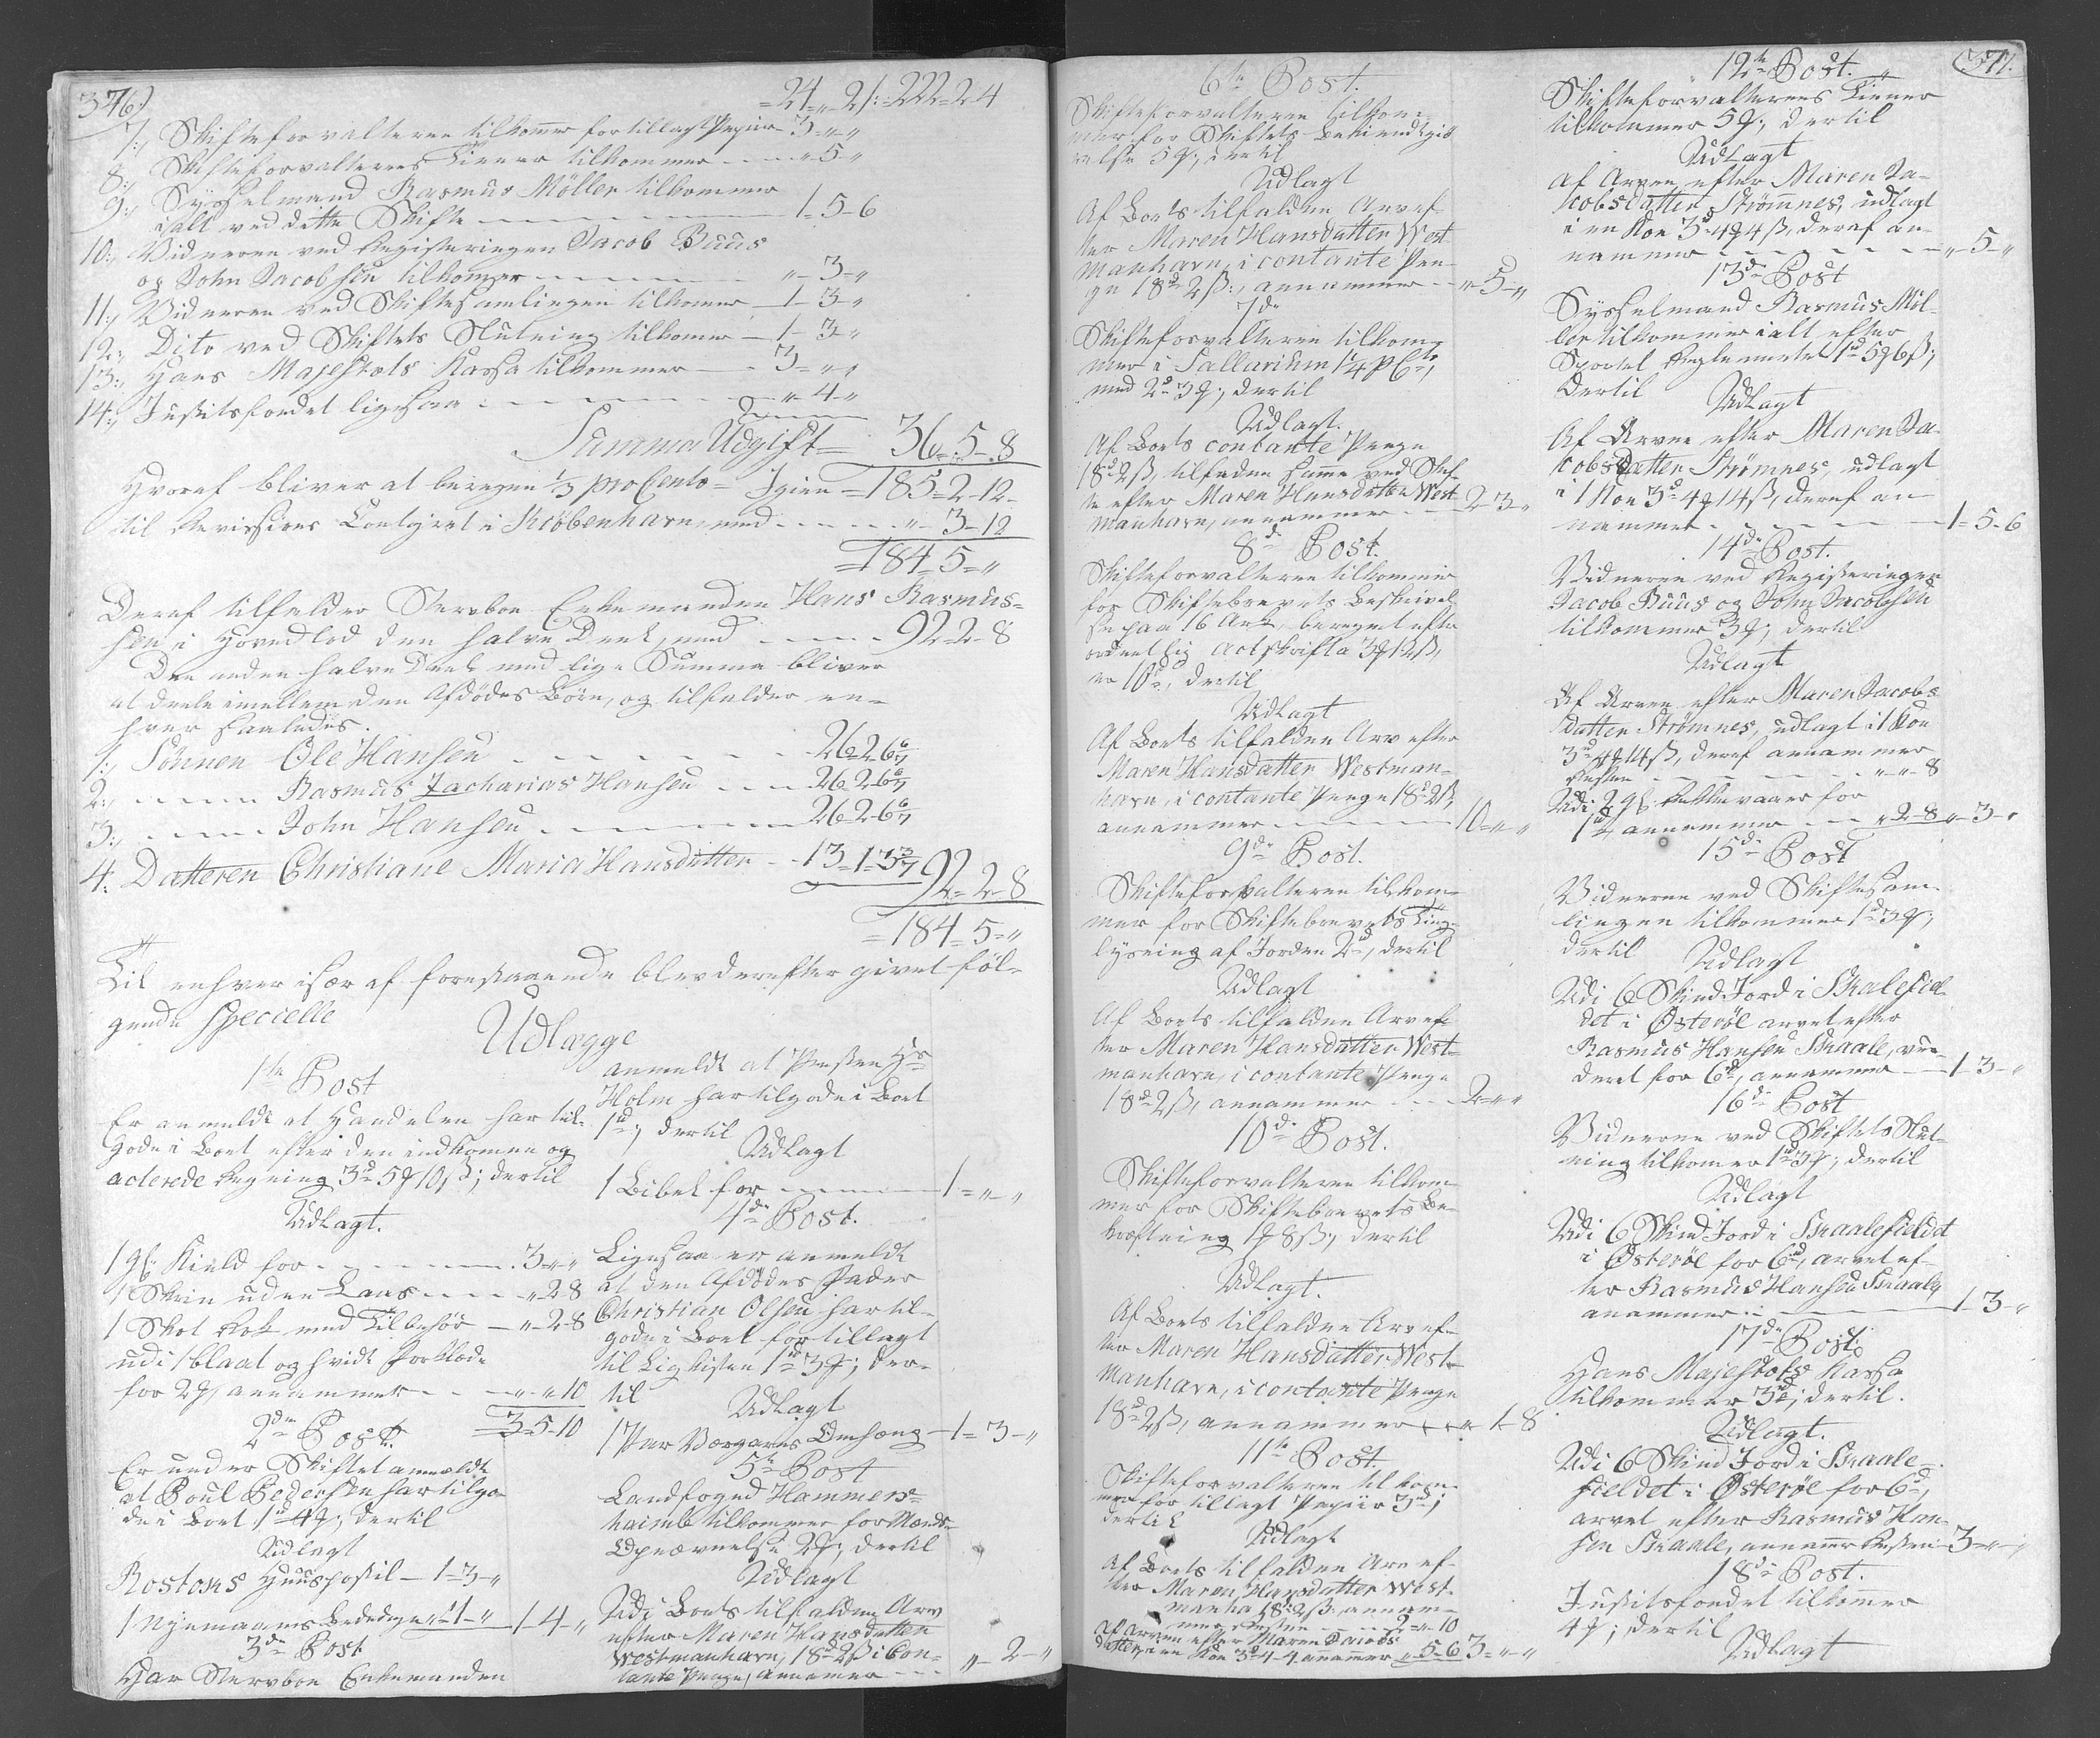 376)
= 24 = „ 2/: = 222 = 2 = 4
7:, Skifteforvalteren tilkommer for tillagt Papiir 3 = „ „
8:, Skifteforvalterens Tienere tilkommer - - - „ 5 „
9:, Sysselmand Rasmus Möller tilkommer
ialt ved dette Skifte - - - - - - 1 - 5 - 6
10:, Vidnerne ved Registeringen Jacob Buus
og John Jacobsen tilkommer - - - - - „ - 3 - „
11:, Vidnerne ved Skiftesamlingen tilkomer - 1 - 3 - „
12:, Dito ved Skiftets Slutning tilkomer - 1 - 3 - „
13:, Hans Majestæts Kassa tilkommer - - 3 = „ „
14:, Justitsfondet ligesaa - - - - - - „ - 4 - „
Summa Udgift = 36 = 5 - 8
Hvoraf bliver at beregne 1/3 pro Cento = Igien = 185 = 2 - 12 -
til Revisions Contoiret i Kiøbenhavn, med - - - - - „ - 3 - 12
= 184 = 5 = „
Deraf tilfalder Stervboe Enkemanden Hans Rasmus=
sen i Hovedlod den halve Deel, med - - - - 92 - 2 - 8
Den anden halve Deel med lige Summa bliver
at deele imellem den Afdødes Børn, og tilfalder en-
hver saaledes.
1:, Sönnen Ole Hansen - - - - - 26 - 2 - 6 6/7
2:, - - - - Rasmus Zacharias Hansen - - - 26 - 2 - 6 6/7
3:, - - - - John Hansen - - - - - 26 - 2 - 6 6/7
4:, Datteren Christiane Maria Hansdatter - - 13 - 1 - 3 3/7 92 = 2 - 8
= 184 = 5 = „
Til enhver især af forestaaende blev derefter givet föl-
gende specielle
Udlægge
1te Post
Er anmeldt at Handelen har til-
gode i Boet efter den indkomne og
acterede Regning 3rd 5ꝭ 10ß; dertil
Udlagt.
1 gl: Kield for - - - - - - 3 = „ „
1 Skrin uden Laas - - - „ 2 - 8
1 Skot Rok med Tilbehør - „ - 2 - 8
udi 1 blaat og hvidt Forklæde
for 2ꝭ, annammer - - „ „ 10
3 = 5 - 10
2den Post.
Er under Skiftet anmeldt
at Poul Pedersen har tilgo-
de i Boet 1rd 4ꝭ; dertil
Udlagt
Rostoks Huuspostil - 1 = 3 - „
1 Nyemaans Bededage „ 1 - „ 1 - 4 - „
3de Post
Har Stervboe Enkemanden
anmeldt at Præsten Hr
Holm har tilgode i Boet
1rd; dertil
Udlagt
1 Bibel for - - - - - 1 = „ „
4de Post.
Ligesaa er anmeldt
at den Afdødes Fader
Christian Olsen har til-
gode i Boet for tillagt
til Ligkisten 1rd 3ꝭ; der-
til
Udlagt
1 Par Værgarns Omhæng - 1 = 3 - „
5te Post
Landfoged Hammers-
haimb tilkommer for Mænds-
Opnævnelse 2ꝭ, dertil
Udlagt
Udi Boets tilfaldne Arv
efter Maren Hansdatter
Westmanhavn, 18rd 2ß i Con-
tante Penge, annamer - - - „ - 2 - „
6te Post.
Skifteforvalteren tilkom-
mer for Skiftets Bekiendtgiö-
relse 5ꝭ; dertil
Udlagt
Af Boets tilfaldne Arv ef-
ter Maren Hansdatter West-
manhavn, i contante Pen-
ge 18rd 2ß:, annammer - - „ - 5 - „
7de
Skifteforvalteren tilkom-
mer i Sallarium 1 1/4 pCto,
med 2rd 3ꝭ; dertil
Udlagt.
Af Boets contante Penge
18rd 2ß, tilfaldne samme ved Skif-
te efter Maren Hansdatter West-
manhavn, annammer - - 2 - 3 - „
8de Post.
Skifteforvalteren tilkommer
for Skiftebrevets Beskrivel-
se paa 16 Ark, beregnet efter
ordentlig Actskrift a 3ꝭ 12ß,
er 10rd, dertil
Udlagt
Af Boets tilfaldne Arv efter
Maren Hansdatter Westman-
havn, i contante Penge 18rd 2ß,
annammer - - - - - 10 = „ „
9de Post.
Skifteforvalteren tilkom-
mer for Skiftebrevets Ting-
lysning af Jorden 2rd, dertil
Udlagt
Af Boets tilfaldne Arv ef-
ter Maren Hansdatter West-
manhavn, i contante Penge
18rd 2ß, annammer - - - 2 = „ „
10de Post.
Skifteforvalteren tilkom-
mer for Skiftebrevets Be-
kræftning 1ꝭ 8ß; dertil
Udlagt.
Af Boets tilfaldne Arv ef-
ter Maren Hansdatter West-
manhavn, i contante Penge
18rd 2ß, annammer - - „ 1 - 8
11te Post.
Skifteforvalteren tilkom-
mer for tillagt Papiir 3rd;
dertil
Udlagt
Af Boets tilfaldne Arv ef-
ter Maren Hansdatter West-
manha 18rd 2ß annam-
mer Resten - - - 2 = „ - 10
af Arven efter Maren Jacobs
datter, i en Koe 3rd 4 - 4 anamer „ 5 - 6 3 = „ „
377.
12te Post.
Skifteforvalterens Tiener
tilkommer 5ꝭ; dertil
Udlagt
af Arven efter Maren Ja-
cobsdatter Strømnes, udlagt
i en Koe 3rd 4ꝭ 4ß, deraf an-
nammer - - - - - „ - 5 - „
13de Post
Sysselmand Rasmus Möl-
ler tilkommer ialt efter
Sportel Reglementet 1rd 5ꝭ 6ß;
dertil
Udlagt
Af Arven efter Maren Ja-
cobsdatter Strømnes, udlagt
i 1 Koe 3rd 4ꝭ 14ß, deraf an-
nammer - - - - - 1 = 5 - 6
14de Post.
Vidnerne ved Registeringen
Jacob Buus og John Jacobsen
tilkommer 3ꝭ; dertil
Udlagt
Af Arven efter Maren Jacobs
datter Strømnes, udlagt i 1 Koe
3rd 4ꝭ 14ß, deraf annammer
Resten - - - - - „ „ 8
Udi 2 gl: for
1rd annammer - - „ 2 - 8 „ - 3 - „
15de Post
Vidnerne ved Skiftesam-
lingen tilkommer 1rd 3ꝭ;
dertil
Udlagt
Udi 6 Skind Jord i Skaalefiel-
det i Østerøe arvet efter
Rasmus Hansen Skaale, vur-
deret for 6rd, annammer - - 1 - 3 - „
16de Post
Vidnerne ved Skiftets Slut-
ning tilkomer 1rd 3ꝭ; dertil
Udlagt
Udi 6 Skind Jord i Skaalefieldet
i Østerøe for 6rd, arvet ef-
ter Rasmus Hansen Skaale,
anammer - - - - 1 - 3 - „
17de Post.
Hans Majestæts Kassa
tilkommer 3rd; dertil.
Udlagt.
Udi 6 Skind Jord i Skaale-
fieldet i Østerøe for 6rd,
arvet efter Rasmus Han-
sen Skaale, anamer Resten 3 = „ - „
18de Post.
Justitsfondet tilkommer
4ꝭ; dertil
Udlagt